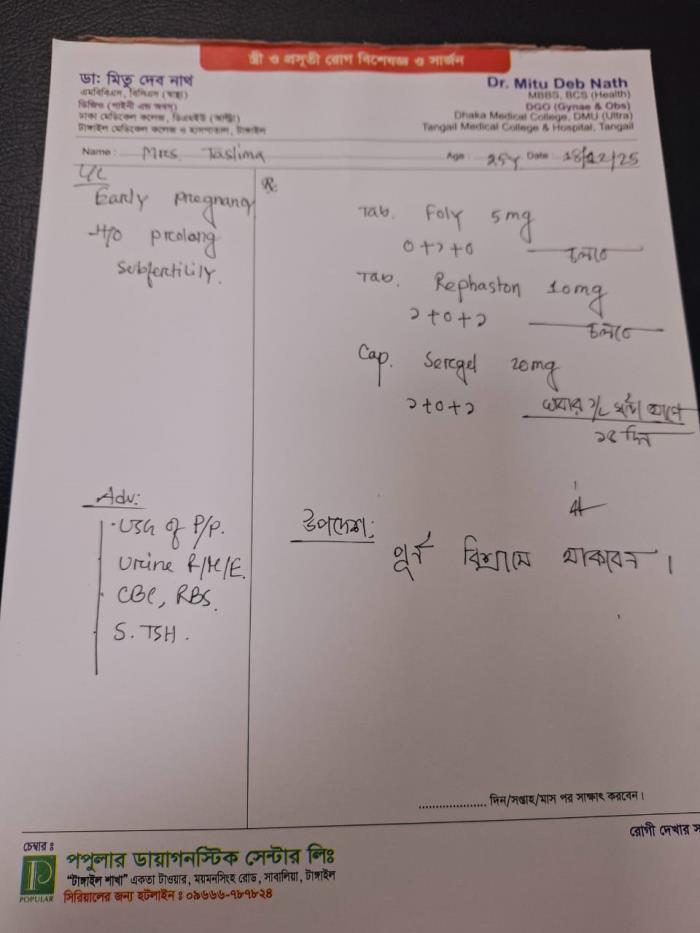 স্ত্রী ও প্রসূতী রোগ বিশেষজ্ঞ ও সার্জন
ডা: মিতু দেব নাথ
এমবিবিএস, বিসিএস (স্বাস্থ্য)
ডিজিও (গাইনী এন্ড অবস্)
ঢাকা মেডিকেল কলেজ, ডিএমইউ (আল্ট্রা)
টাঙ্গাইল মেডিকেল কলেজ ও হাসপাতাল, টাঙ্গাইল
Dr. Mitu Deb Nath
MBBS, BCS (Health)
DGO (Gynae & Obs)
Dhaka Medical College, DMU (Ultra)
Tangail Medical College & Hospital, Tangail
Name: Mrs. Taslima Age: 25y Date: 18/12/25
Early pregnancy
H/O prolong
subfertility.
Rx
Tab. Foly 5mg
0+১+0 চলবে
Tab. Rephaston 10mg
১+0+১ চলবে
Cap. Sergel 20mg
১+0+১ খাবার ১/২ ঘন্টা আগে
১৪ দিন
Adv:
USG of P/P.
Urine R/M/E.
CBC, RBS.
S. TSH.
উপদেশ:
পূর্ন বিশ্রামে থাকবেন।
.................... দিন/সপ্তাহ/মাস পর সাক্ষাৎ করবেন।
রোগী দেখার স
চেম্বার ঃ
POPULAR
পপুলার ডায়াগনস্টিক সেন্টার লিঃ
"টাঙ্গাইল শাখা" একতা টাওয়ার, ময়মনসিংহ রোড, সাবালিয়া, টাঙ্গাইল
সিরিয়ালের জন্য হটলাইন ঃ ০৯৬৬৬-৭৮৭৮২৪